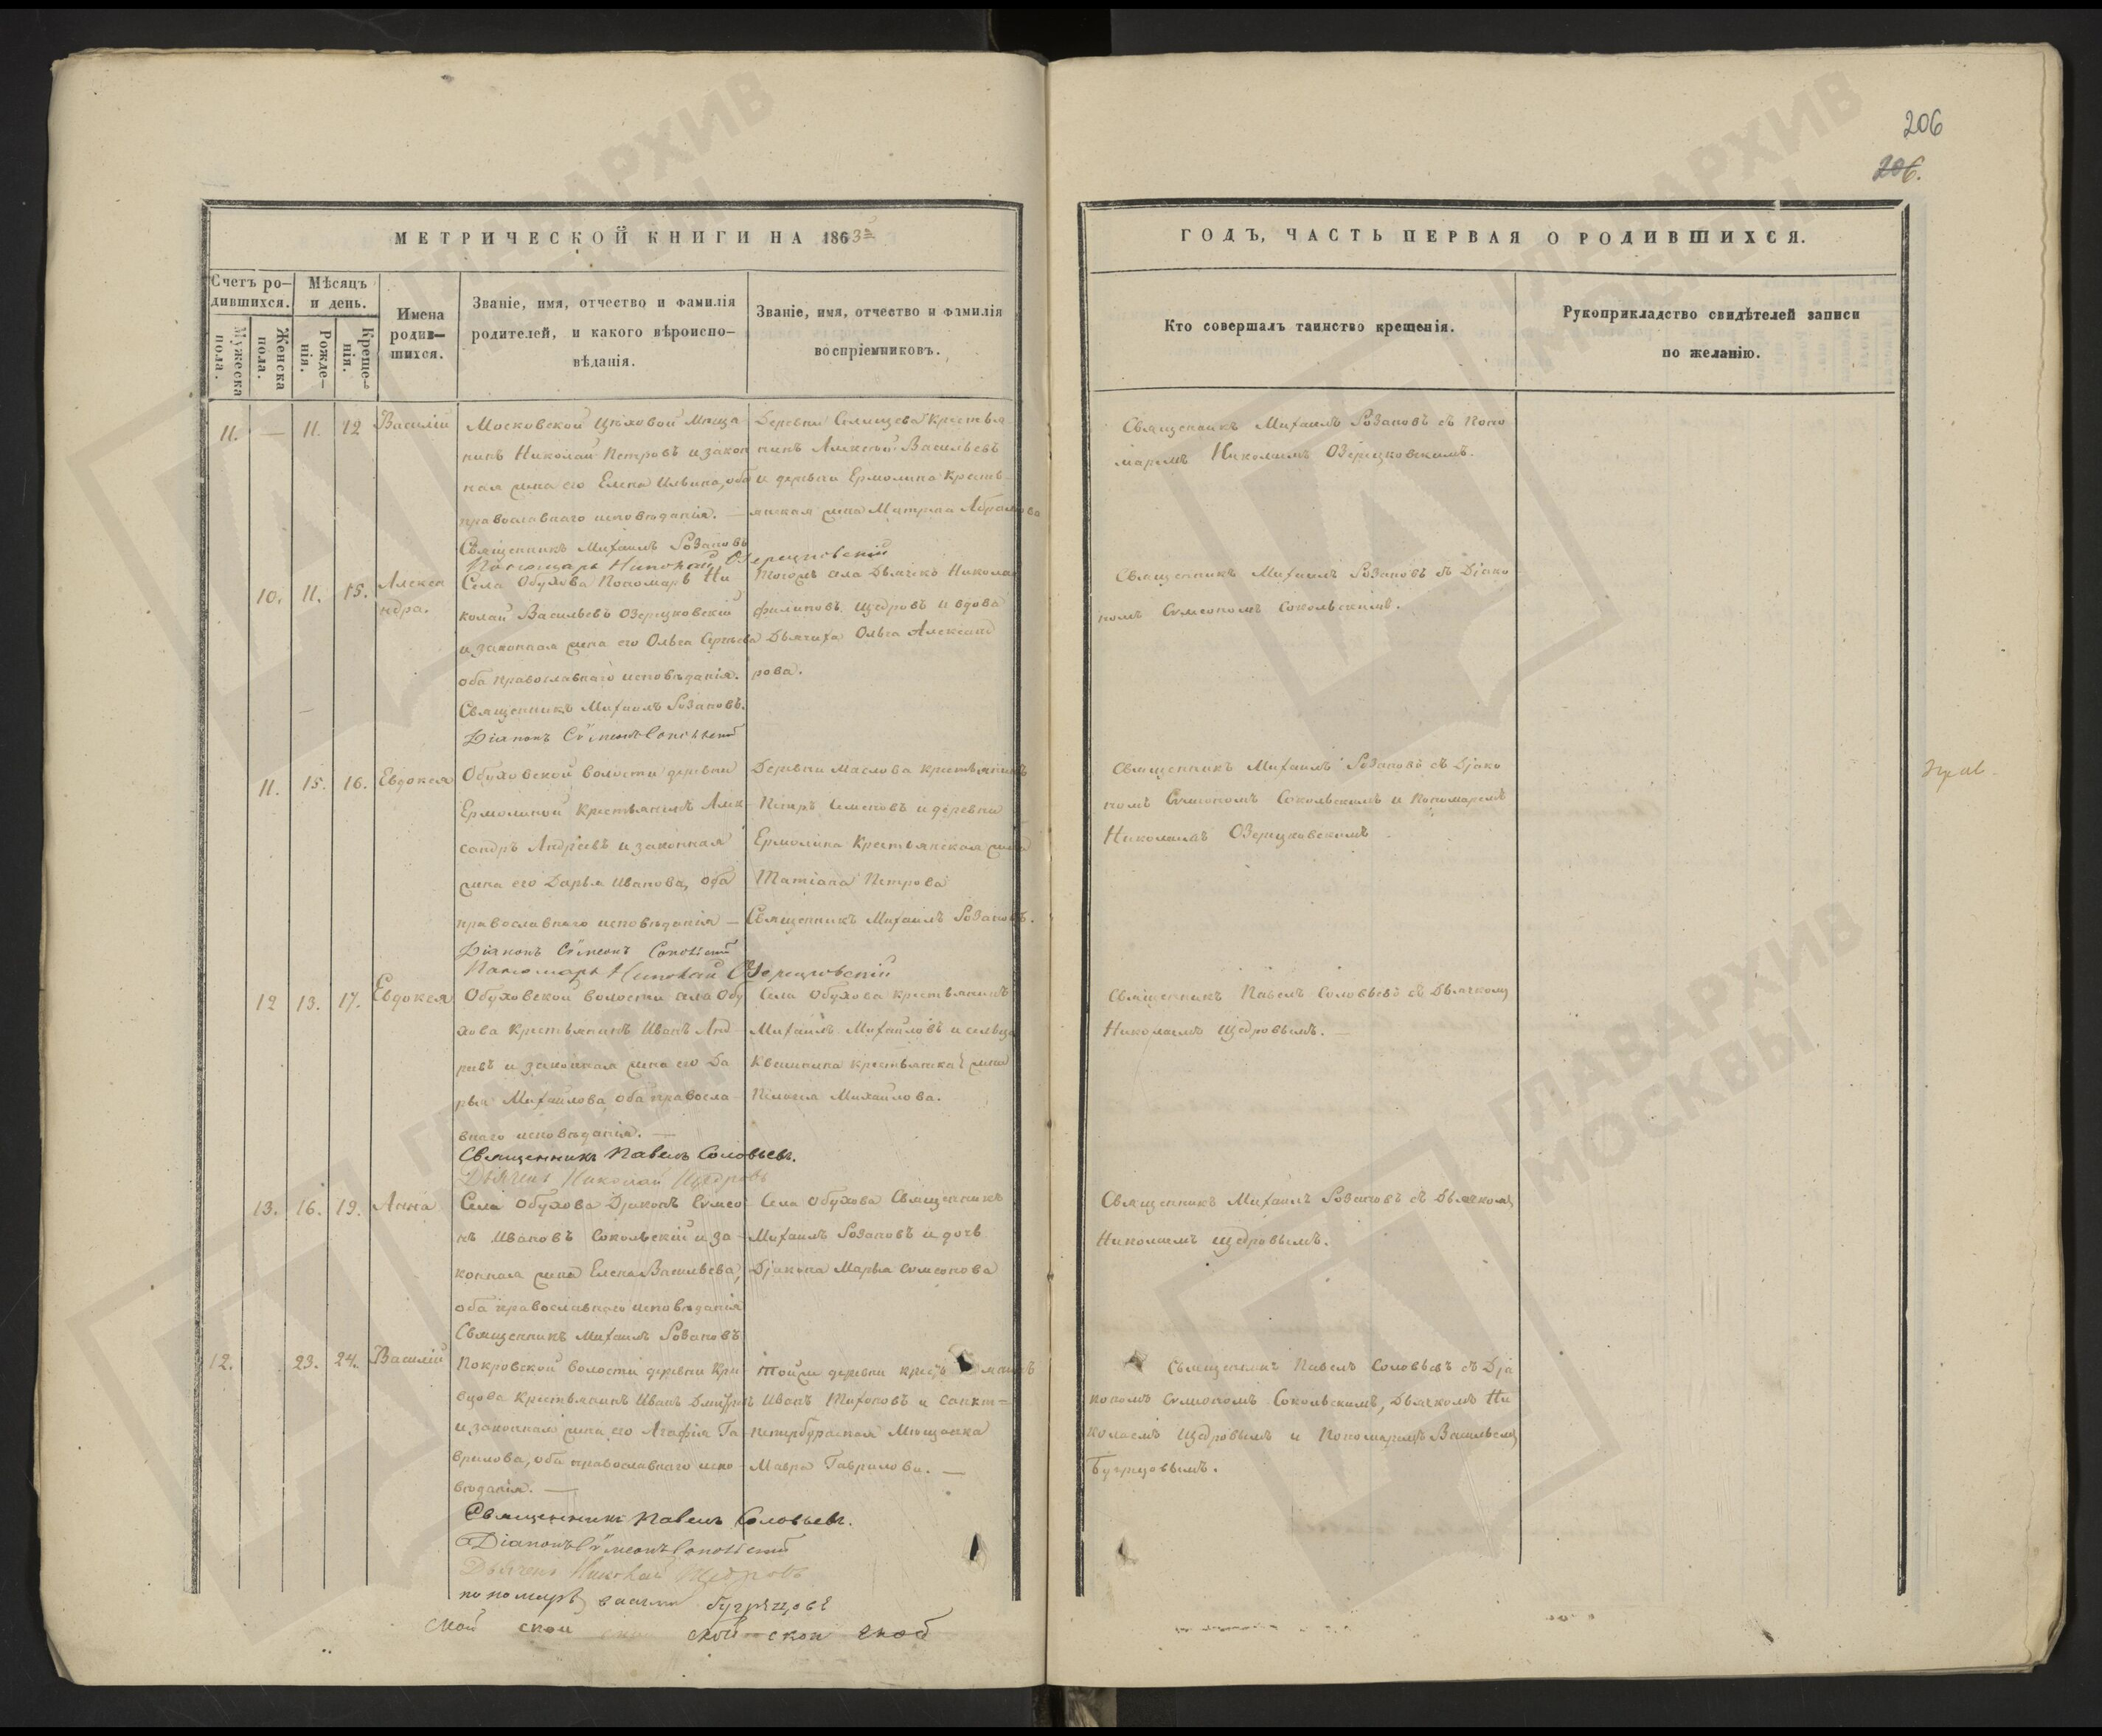 206
206.
МЕТРИЧЕСКОЙ КНИГИ НА 1863й
ГОДЪ, ЧАСТЬ ПЕРВАЯ О РОДИВШИХСЯ.
Счетъ ро-
дившихся.
Мужеска
пола.
Женска
пола.
Мѣсяцъ
и день.
Рожде-
нія.
Креще-
нія.
Имена
родив-
шихся.
Званіе, имя, отчество и фамилія
родителей, и какого вѣроиспо-
вѣданія.
Званіе, имя, отчество и фамилія
воспріемниковъ.
Кто совершалъ таинство крещенія.
Рукоприкладство свидѣтелей записи
по желанію.
11. — 11. 12 Василій
Московской Цѣховой Мѣща
нинъ Николай Петровъ и закон
ная жена его Елена Ильина, оба
православнаго исповѣданія. —
Священникъ Михаилъ Розановъ
Пономарь Николай Озерецковскій
Деревни Селищева Крестья
нинъ Алексѣй Васильевъ
и деревни Ермолина Кресть
янская жена Матрена Абрамова
Священникъ Михаилъ Розановъ съ Поно
маремъ Николаемъ Озерецковскимъ.
10. 11. 15. Алексан
ндра.
Села Обухова Пономарь Ни
колай Васильевъ Озерецковскій
и законная жена его Ольга Сергѣева
оба православнаго исповѣданія.
Священникъ Михаилъ Розановъ.
Діаконъ Сѵмеонъ Сокольскій
Тогожъ села Дьячекъ Николай
Филиповъ Щедровъ и вдова
Дьячиха Ольга Александ
рова.
Священникъ Михаилъ Розановъ съ Діако
номъ Сѵмеономъ Сокольскимъ.
11. 15. 16. Евдокея
Обуховской волости деревни
Ермолиной Крестьянинъ Алек
сандръ Андреевъ и законная
жена его Дарья Иванова, оба
православнаго исповѣданія —
Діаконъ Сѵмеонъ Сокольскій
Пономарь Николай Озерецковскій
Деревни Маслова крестьянинъ
Петръ Семеновъ и деревни
Ермолина Крестьянская жена
Татіана Петрова
Священникъ Михаилъ Розановъ.
Священникъ Михаилъ Розановъ съ Діако
номъ Сѵмеономъ Сокольскимъ и Пономаремъ
Николаемъ Озерецковскимъ
12 13. 17. Евдокея
Обуховской волости села Обу
хова Крестьянинъ Иванъ Анд
реевъ и законная жена его Да
рья Михайлова, оба правосла
внаго исповѣданія. —
Священникъ Павелъ Соловьевъ.
Дьячекъ Николай Щедровъ
Села Обухова крестьянинъ
Михаилъ Михайловъ и сельца
Квашнина крестьянка жена
Пелагея Михайлова.
Священникъ Павелъ Соловьевъ съ Дьячкомъ
Николаемъ Щедровымъ. —
13. 16. 19. Анна
Села Обухова Діаконъ Сѵмео
нъ Ивановъ Сокольскій и за
конная жена Елена Васильева,
оба православнаго исповѣданія
Священникъ Михаилъ Розановъ
Села Обухова Священникъ
Михаилъ Розановъ и дочь
Діакона Марья Сѵмеонова
Священникъ Михаилъ Розановъ съ Дьячкомъ
Николаемъ Щедровымъ.
12. 23. 24. Василій
Покровской волости деревни Кри
вцова Крестьянинъ Иванъ Дмитріевъ
и законная жена его Агафія Га
врилова, оба православнаго испо
вѣданія. —
Священникъ Павелъ Соловьевъ.
Діаконъ Сѵмеонъ Сокольскій
Дьячекъ Николай Щедровъ
пономарь Василій Бугрецовъ
Той же деревни крестьянинъ
Иванъ Тихоновъ и Санкт=
петербургская Мѣщанка
Мавра Гаврилова. —
Священникъ Павелъ Соловьевъ съ Діа
кономъ Сѵмеономъ Сокольскимъ, Дьячкомъ Ни
колаемъ Щедровымъ и Пономаремъ Васильемъ
Бугрецовымъ.
ской скои ской скои
ГЛАВАРХИВ
МОСКВЫ
ГЛАВАРХИВ
МОСКВЫ
ГЛАВАРХИВ
МОСКВЫ
ГЛАВАРХИВ
МОСКВЫ